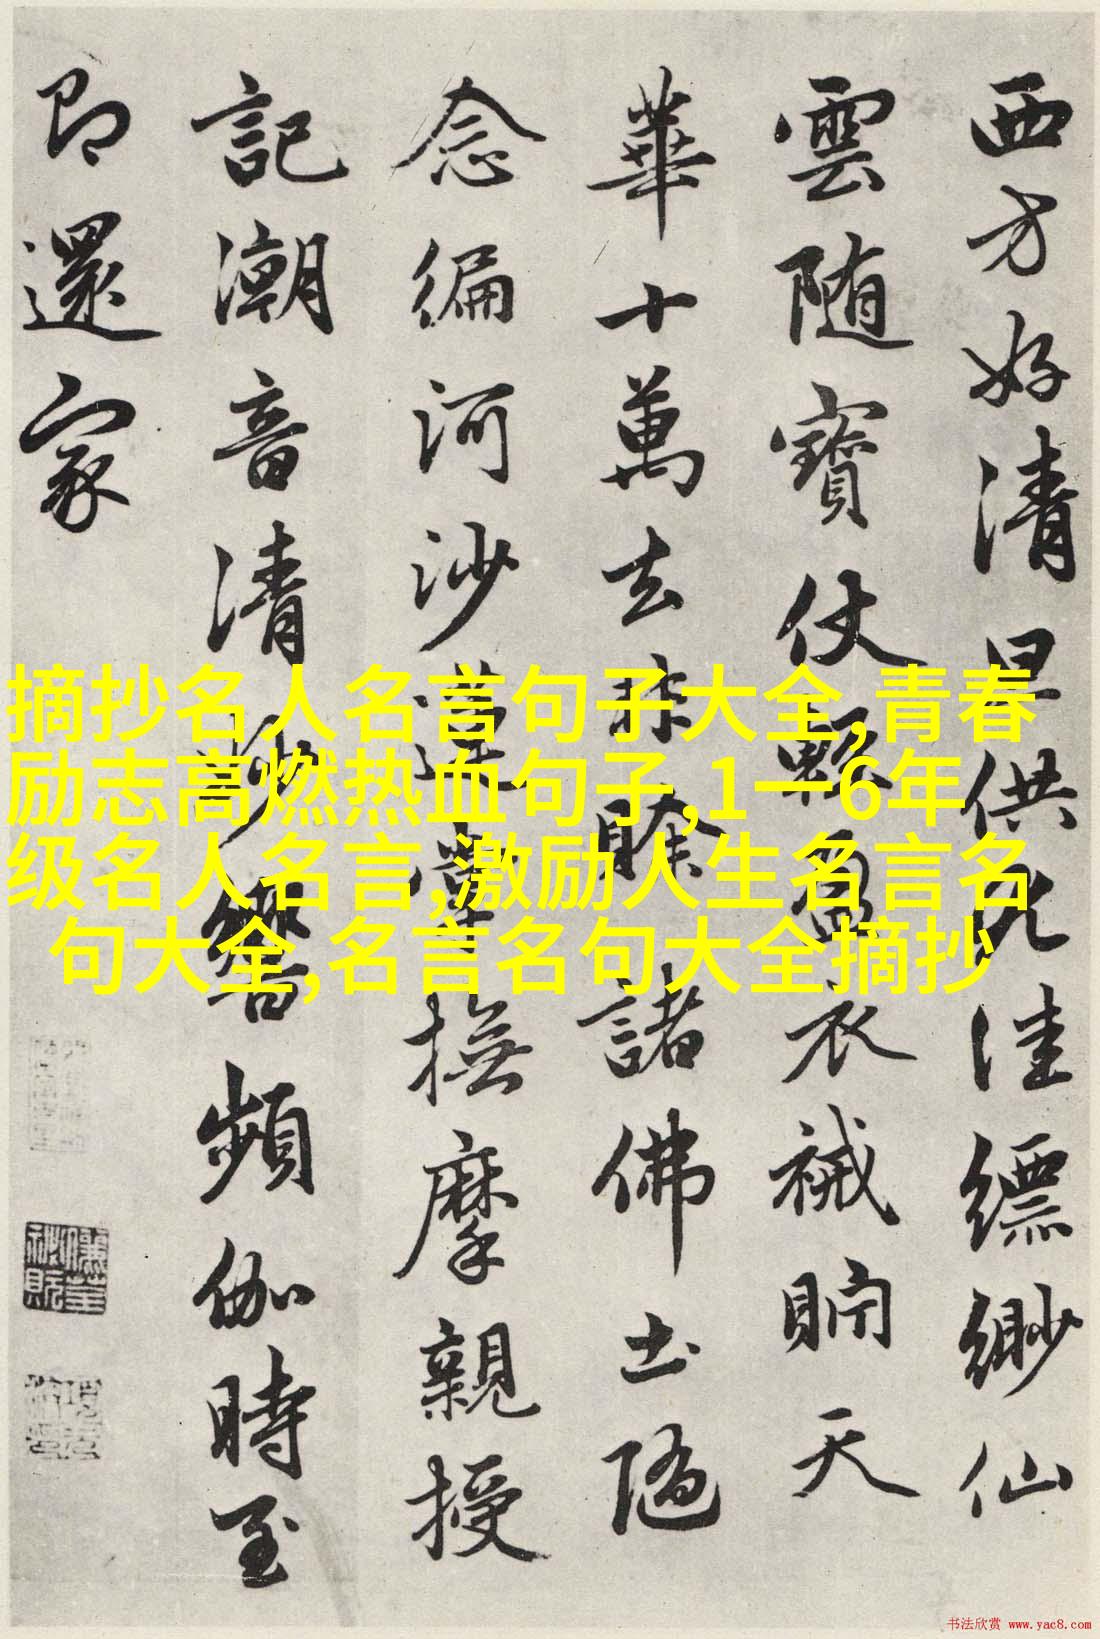 西方好清旦供尤佳縹緲仙
雲随寶仗輕盈衣裓貯天
華十萬去非賒諸佛土隨
念編河沙蓮掌撫摩親授
記潮音清妙響頻伽時至
即還家
摘抄名人名言句子大全,青春
励志高燃热血句子,1一6年
级名人名言,激励人生名言名
句大全,名言名句大全摘抄
书法欣赏 www.yac8.com